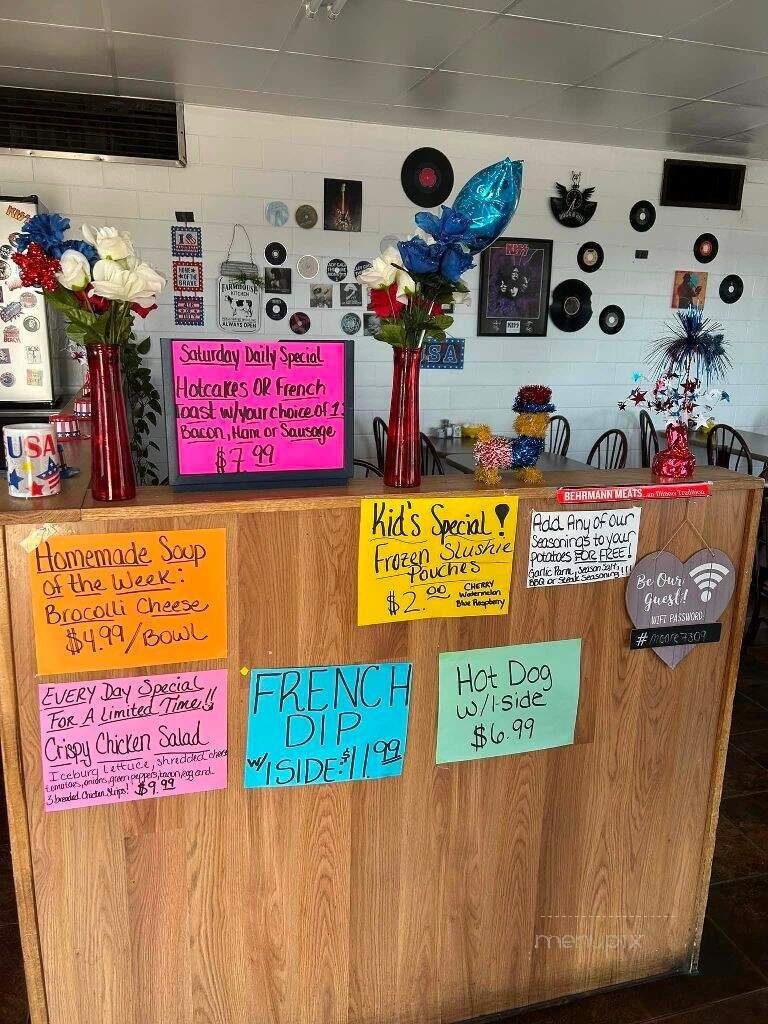 KISS
I
HOME
OF THE
BRAVE
FARMHOUSE
KITCHEN
ALWAYS
OPEN
LADY GAGA
KISS
KISS
USA
USA
Saturday Daily Special
Hotcakes OR French
Toast w/your choice of 1:
Bacon, Ham or Sausage
$7.99
BEHRMANN MEATS ...an Illinois Tradition
Homemade Soup
of the Week:
Brocolli Cheese
$4.99/Bowl
Kid's Special!
Frozen Slushie
Pouches
$2.00
CHERRY
Watermelon
Blue Raspberry
Add Any of our
Seasonings to your
potatoes FOR FREE!
Garlic Parm, Season Salt,
BBQ or Steak Seasoning!!!
Be Our
Guest!
WIFI PASSWORD:
#moore7309
EVERY Day Special
For A Limited Time!!
Crispy Chicken Salad
Iceburg Lettuce, shredded cheese
tomatoes, onions, green peppers, bacon, egg and
3 breaded Chicken Strips! $9.99
FRENCH
DIP
w/1 SIDE: $11.99
Hot Dog
w/1-side
$6.99
menupix